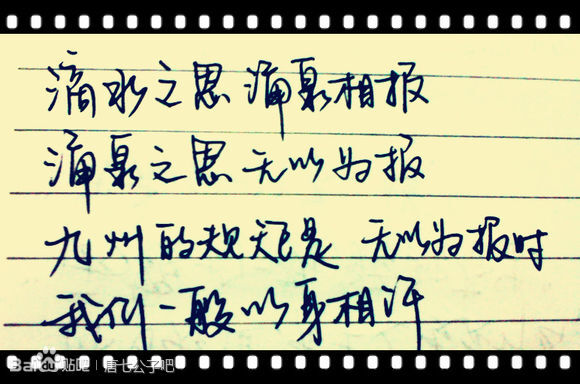 滴水之恩 涌泉相报
涌泉之恩 无以为报
九州的规矩是 无以为报时
我们一般以身相许
Baidu贴吧 | 唐七公子吧